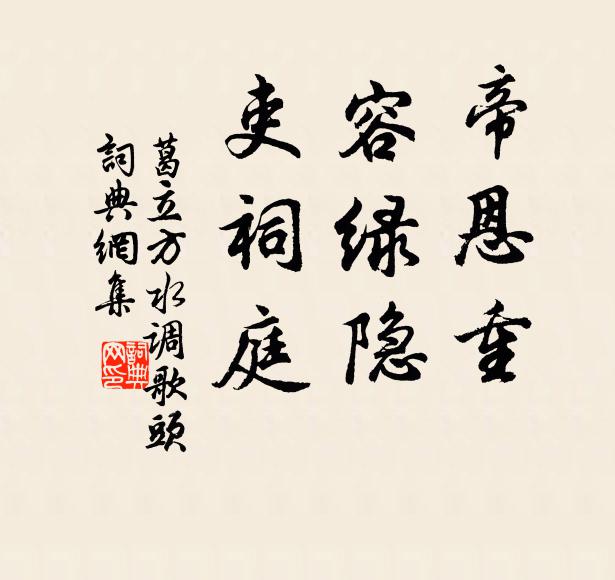 帝恩重
容绿隐
吏祠庭
葛立方水调歌头
詞典網集
詞典网印